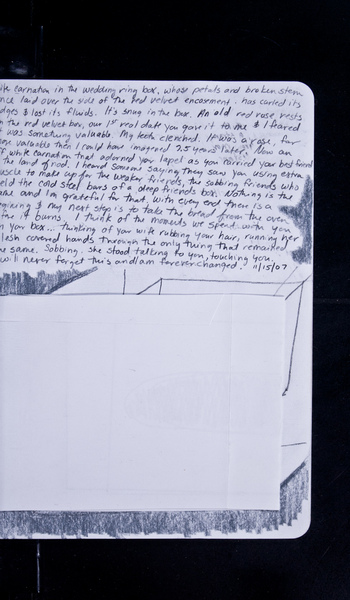 carnation in the wedding ring box, whose petals and broken stem
once laid over the side of the red velvet encasement. has curled its
edges & lost its fluids. It's snug in the box. An old red rose rests
in the red velvet box, our 1st real date you gave it to me & I feared
it was something valuable. My teeth clenched. It was a rose, far
more valuable then I could have imagered 7.5 years later. Now an
off white carnation that adorned you lapel as you carried your best friend
to the land of God. I heard someone saying they saw you using extra
muscle to make up for the weaker friends, the sobbing friends who
held the cold steel bars of a deep friends box. Nothing is the
same and I'm grateful for that. With every end there is a
begining & my next step is to take the bread from the oven
it burns. I think of the moments we spent with you
in your box... thinking of you wife rubbing your hair, running her
covered hands through the only thing that remained
the same. Sobbing. She stood talking to you, touching you.
I will never forget this and I am forever changed. 11/15/07